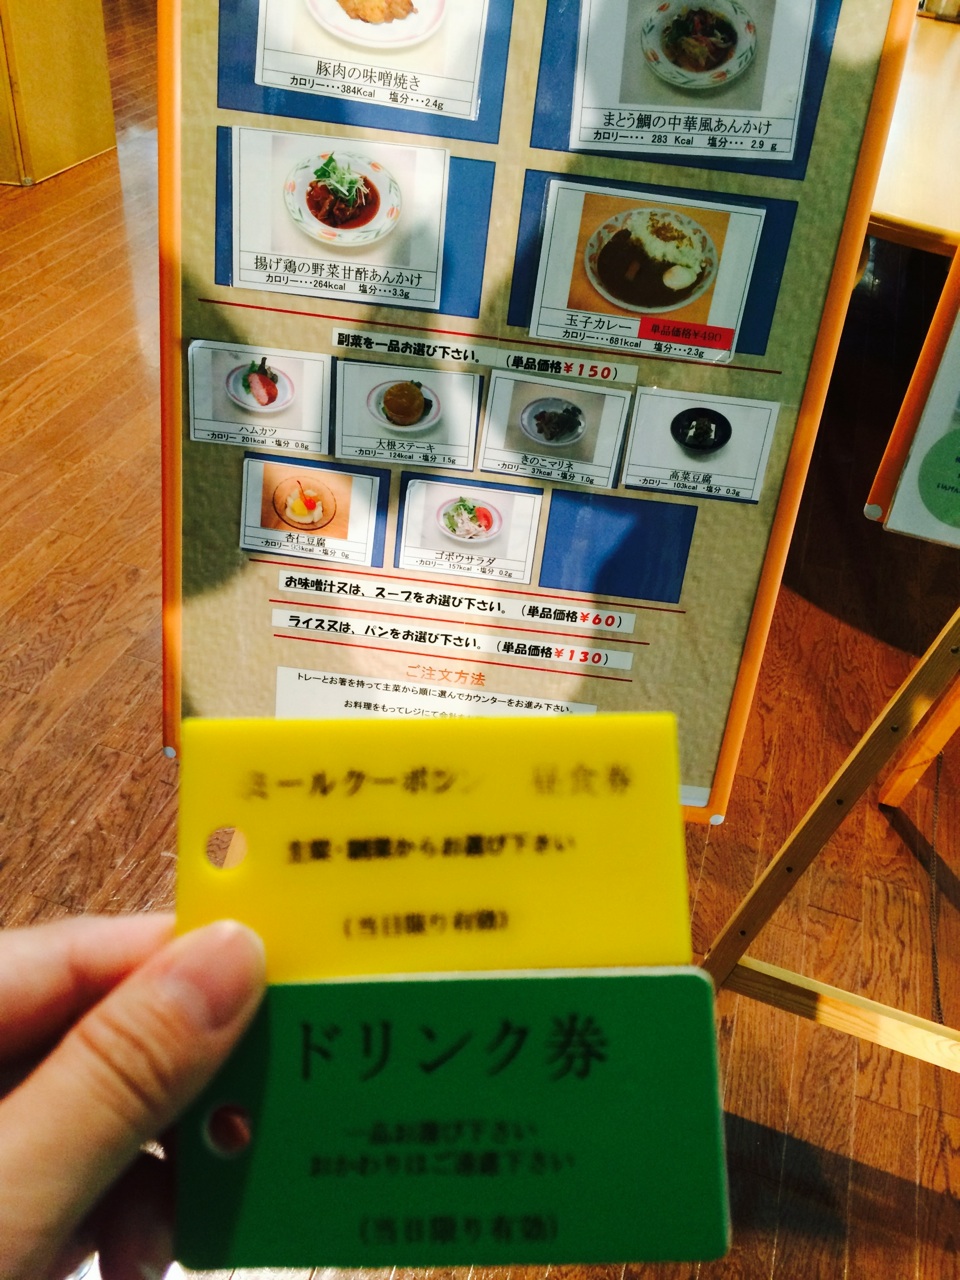 豚肉の味噌焼き
カロリー・・・384Kcal 塩分・・・2.4g
まとう鯛の中華風あんかけ
カロリー・・・ 283 Kcal 塩分・・・ 2.9 g
揚げ鶏の野菜甘酢あんかけ
カロリー・・・264kcal 塩分・・・3.3g
玉子カレー 単品価格¥490
カロリー・・・681kcal 塩分・・・2.3g
副菜を一品お選び下さい。 (単品価格¥150)
ハムカツ
・カロリー 201kcal ・塩分 0.8g
大根ステーキ
・カロリー 124kcal ・塩分 1.5g
きのこマリネ
・カロリー 37kcal ・塩分 1.0g
高菜豆腐
・カロリー 103kcal ・塩分 0.3g
杏仁豆腐
・カロリー kcal ・塩分 0g
ゴボウサラダ
・カロリー 157kcal ・塩分 0.2g
お味噌汁又は、スープをお選び下さい。 (単品価格¥60)
ライス又は、パンをお選び下さい。 (単品価格¥130)
ご注文方法
トレーとお箸を持って主菜から順に選んでカウンターをお進み下さい。
お料理をもってレジにて会計
ミールクーポン 昼食券
主菜・副菜からお選び下さい
(当日限り有効)
ドリンク券
一品お選び下さい
おかわりはご遠慮下さい
(当日限り有効)